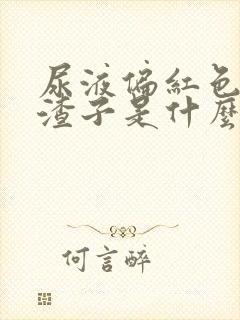 尿液偏紅色
渣子是什麼
何言醉